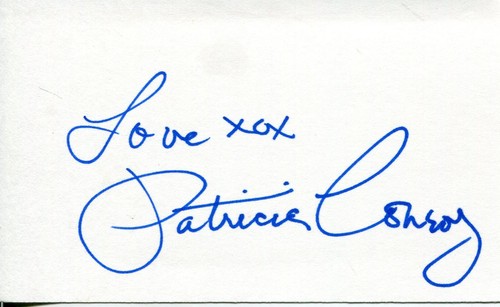 Love xox
Patricia Conroy